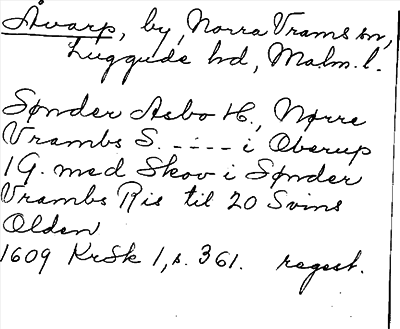 Åvarp, by, Norra Vrams sn,
Luggude hd, Malm. l.
Sønder Asbo H., Nørre
Vrambs S. ---- i Oberup
1 G. med Skov i Sønder
Vrambs Ris til 20 Svins
Olden
1609 KrSk 1, s. 361. regest.